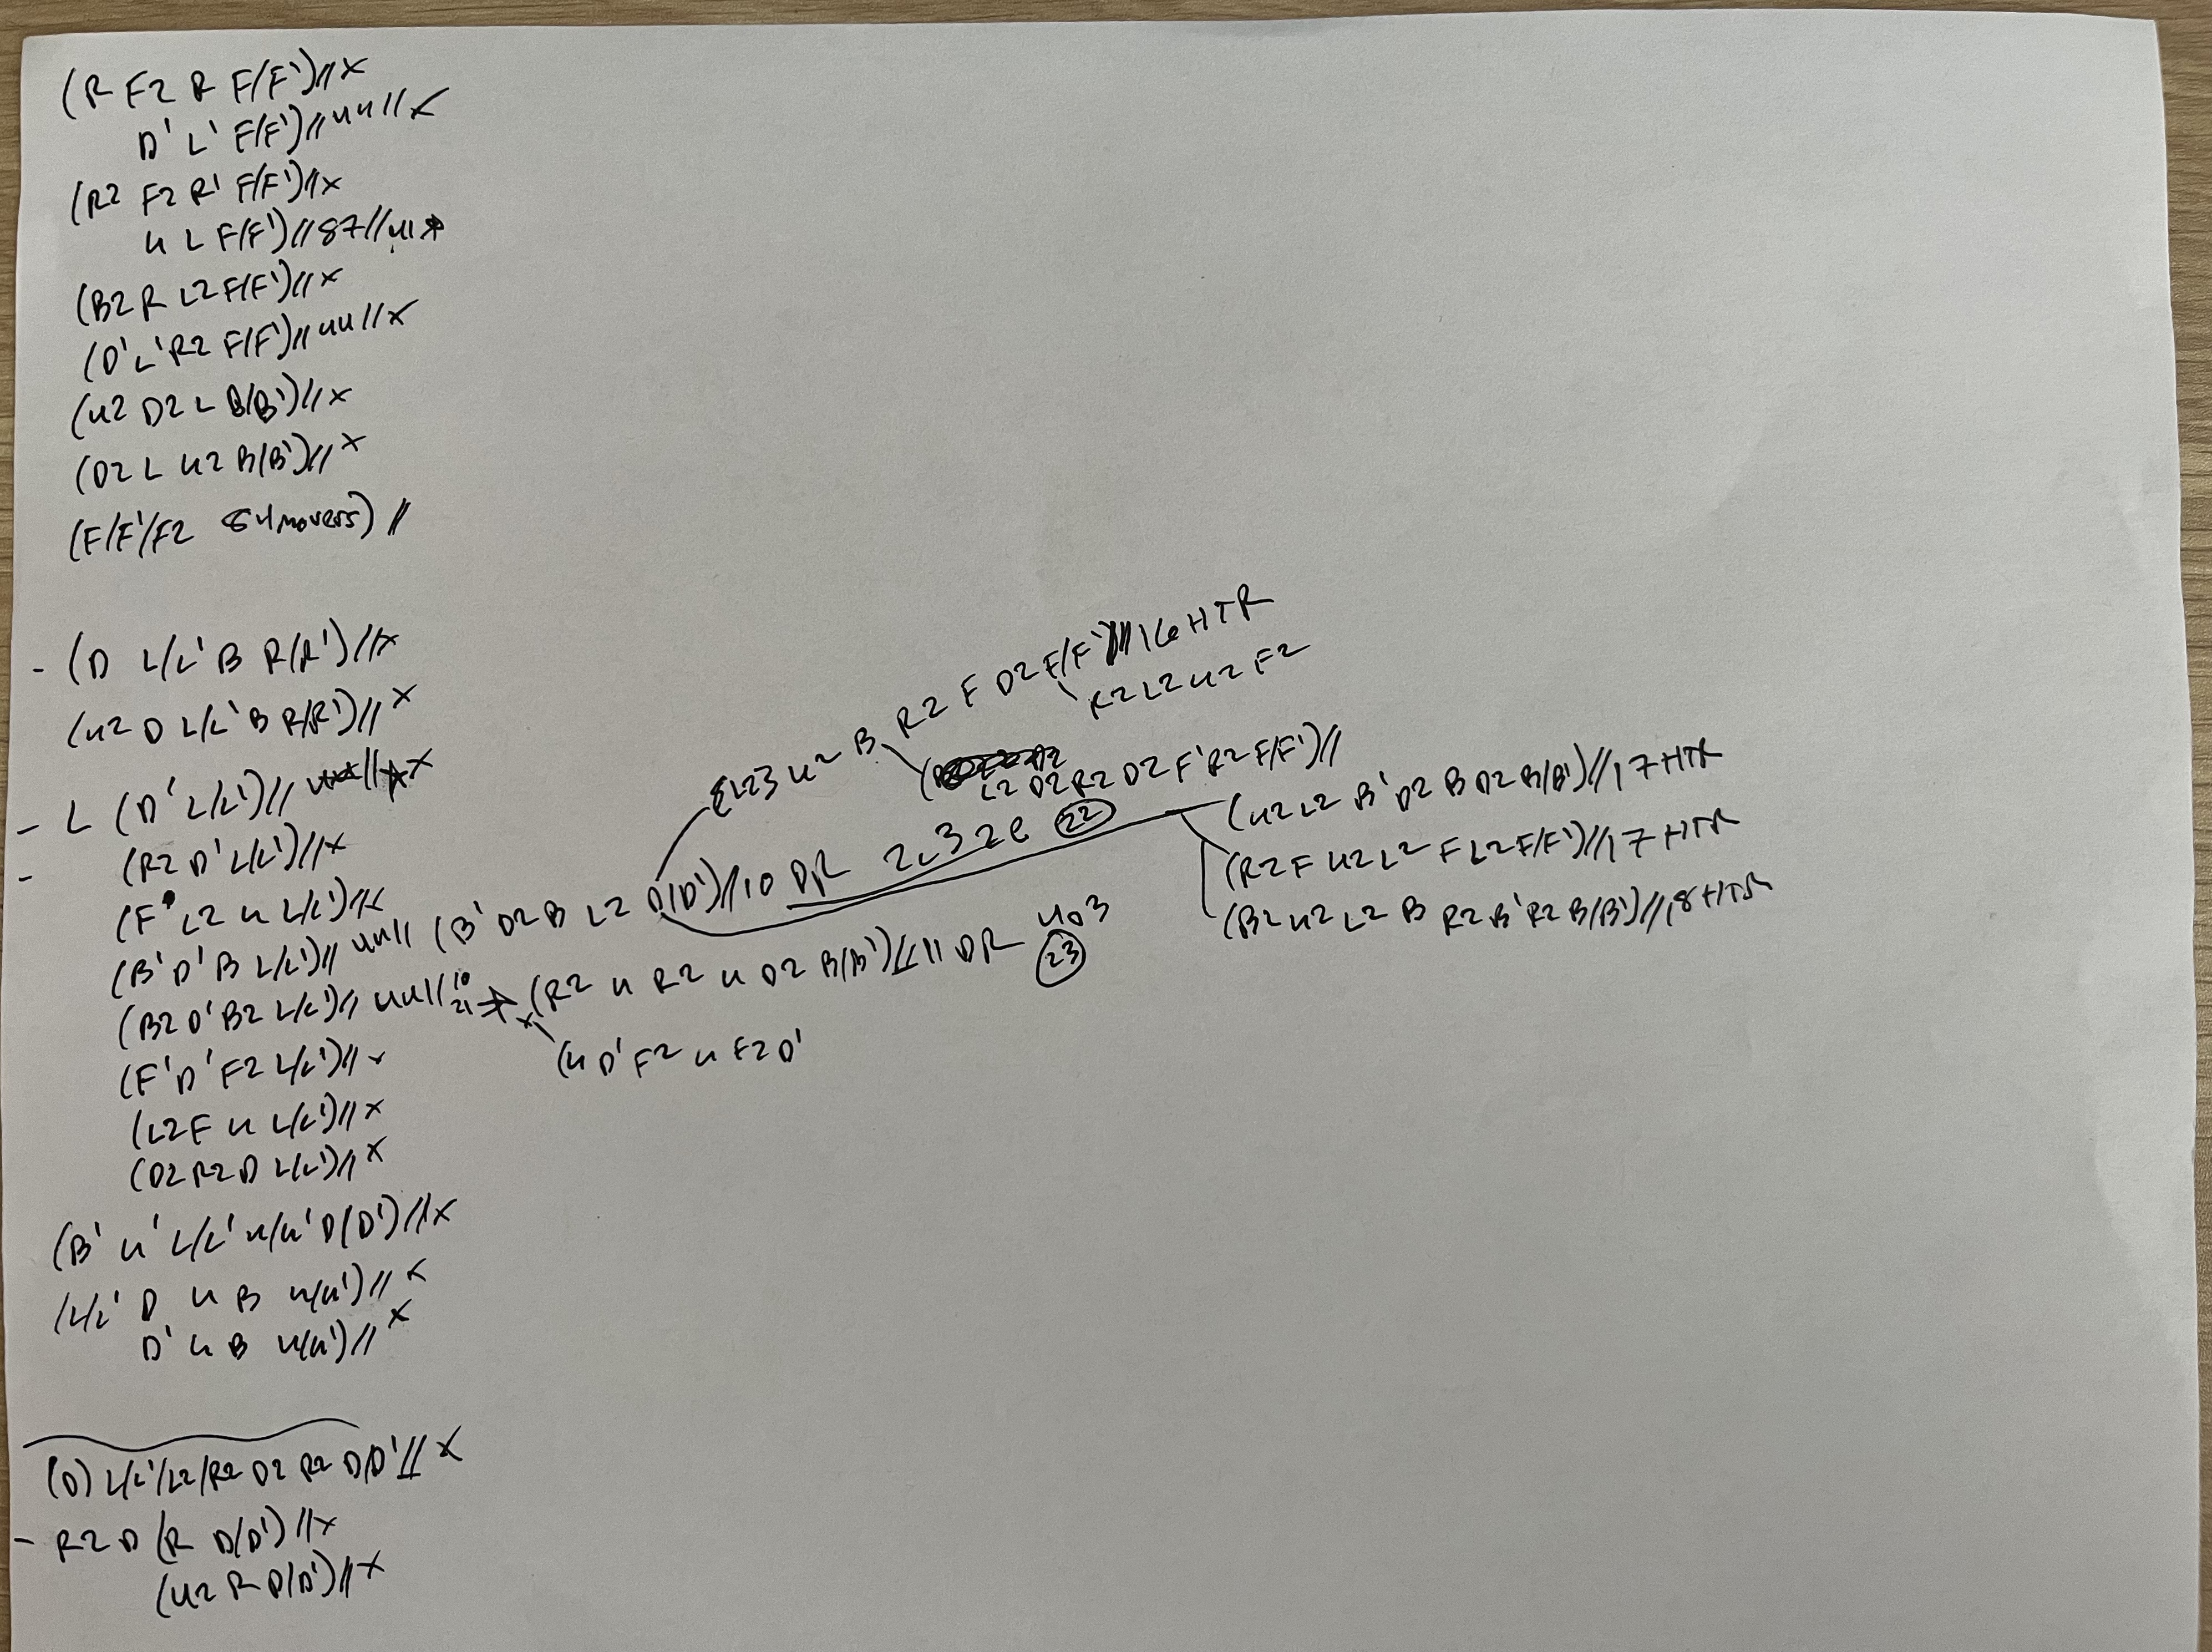 (R F2 R F/F')//x
D' L' F/F')//44//x
(R2 F2 R' F/F')//x
U L F/F')//87//
(B2 R L2 F/F')//x
(D' L' R2 F/F')//44//x
(U2 D2 L B/B')//x
(D2 L U2 B/B')//x
(F/F'/F2 movers)//
- (D L/L' B R/R')//x
(U2 D L/L' B R/R')//x
- L (D' L/L')// x
- (R2 D' L/L')//x
(F L2 U L/L')//x
(B' D' B L/L')//44// (B' D2 B L2 D/D')//10 DR 2c3 2e 22
U2 B R2 F D2 F/F')//16 HTR
R2 L2 U2 F2
L2 D2 R2 D2 F' R2 F/F')//
(U2 L2 B' D2 B D2 B/B')//17 HTR
(R2 F U2 L2 F L2 F/F')//17 HTR
(B2 U2 L2 B R2 B' R2 B/B')//18 HTR
(B2 D' B2 L/L')//44// (R2 U R2 U D2 B/B')//11 DR 4c3 23
(U D' F2 U F2 D'
(F' D' F2 L/L')//x
(L2 F U L/L')//x
(D2 R2 D L/L')//x
(B' U' L/L' U/U' D/D')//x
(L/L' D U B U/U')//x
D' U B U/U')//x
(D) L/L'/L2/R2 D2 R2 D/D'//x
- R2 D (R D/D')//x
(U2 R D/D')//x